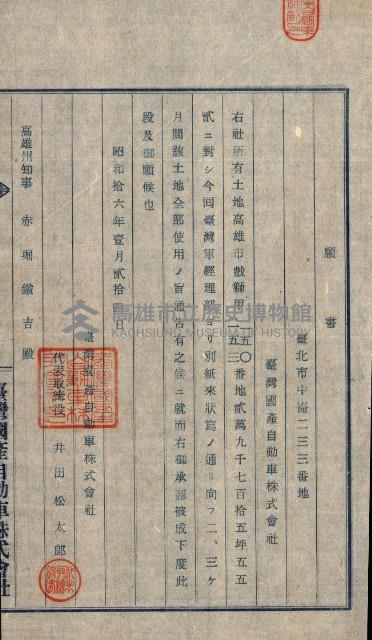 願書
臺北市中崙二三三番地
臺灣國產自動車株式會社
右社所有土地高雄市戲獅甲二五〇二五三番地貳萬九千七百拾五坪五五
貳ニ對シ今回臺灣軍經理部ヨリ別紙來狀寫ノ通リ向フ二、三ヶ
月間該土地全部使用ノ旨通告有之候ニ就而右御承認被成下度此
段及御願候也
昭和拾六年壹月貳拾四日
臺灣國產自動車株式會社
代表取締役 井出松太郎
高雄州知事 赤堀鐵吉殿
臺灣國產自動車株式會社
高雄市立歷史博物館
KAOHSIUNG MUSEUM OF HISTORY